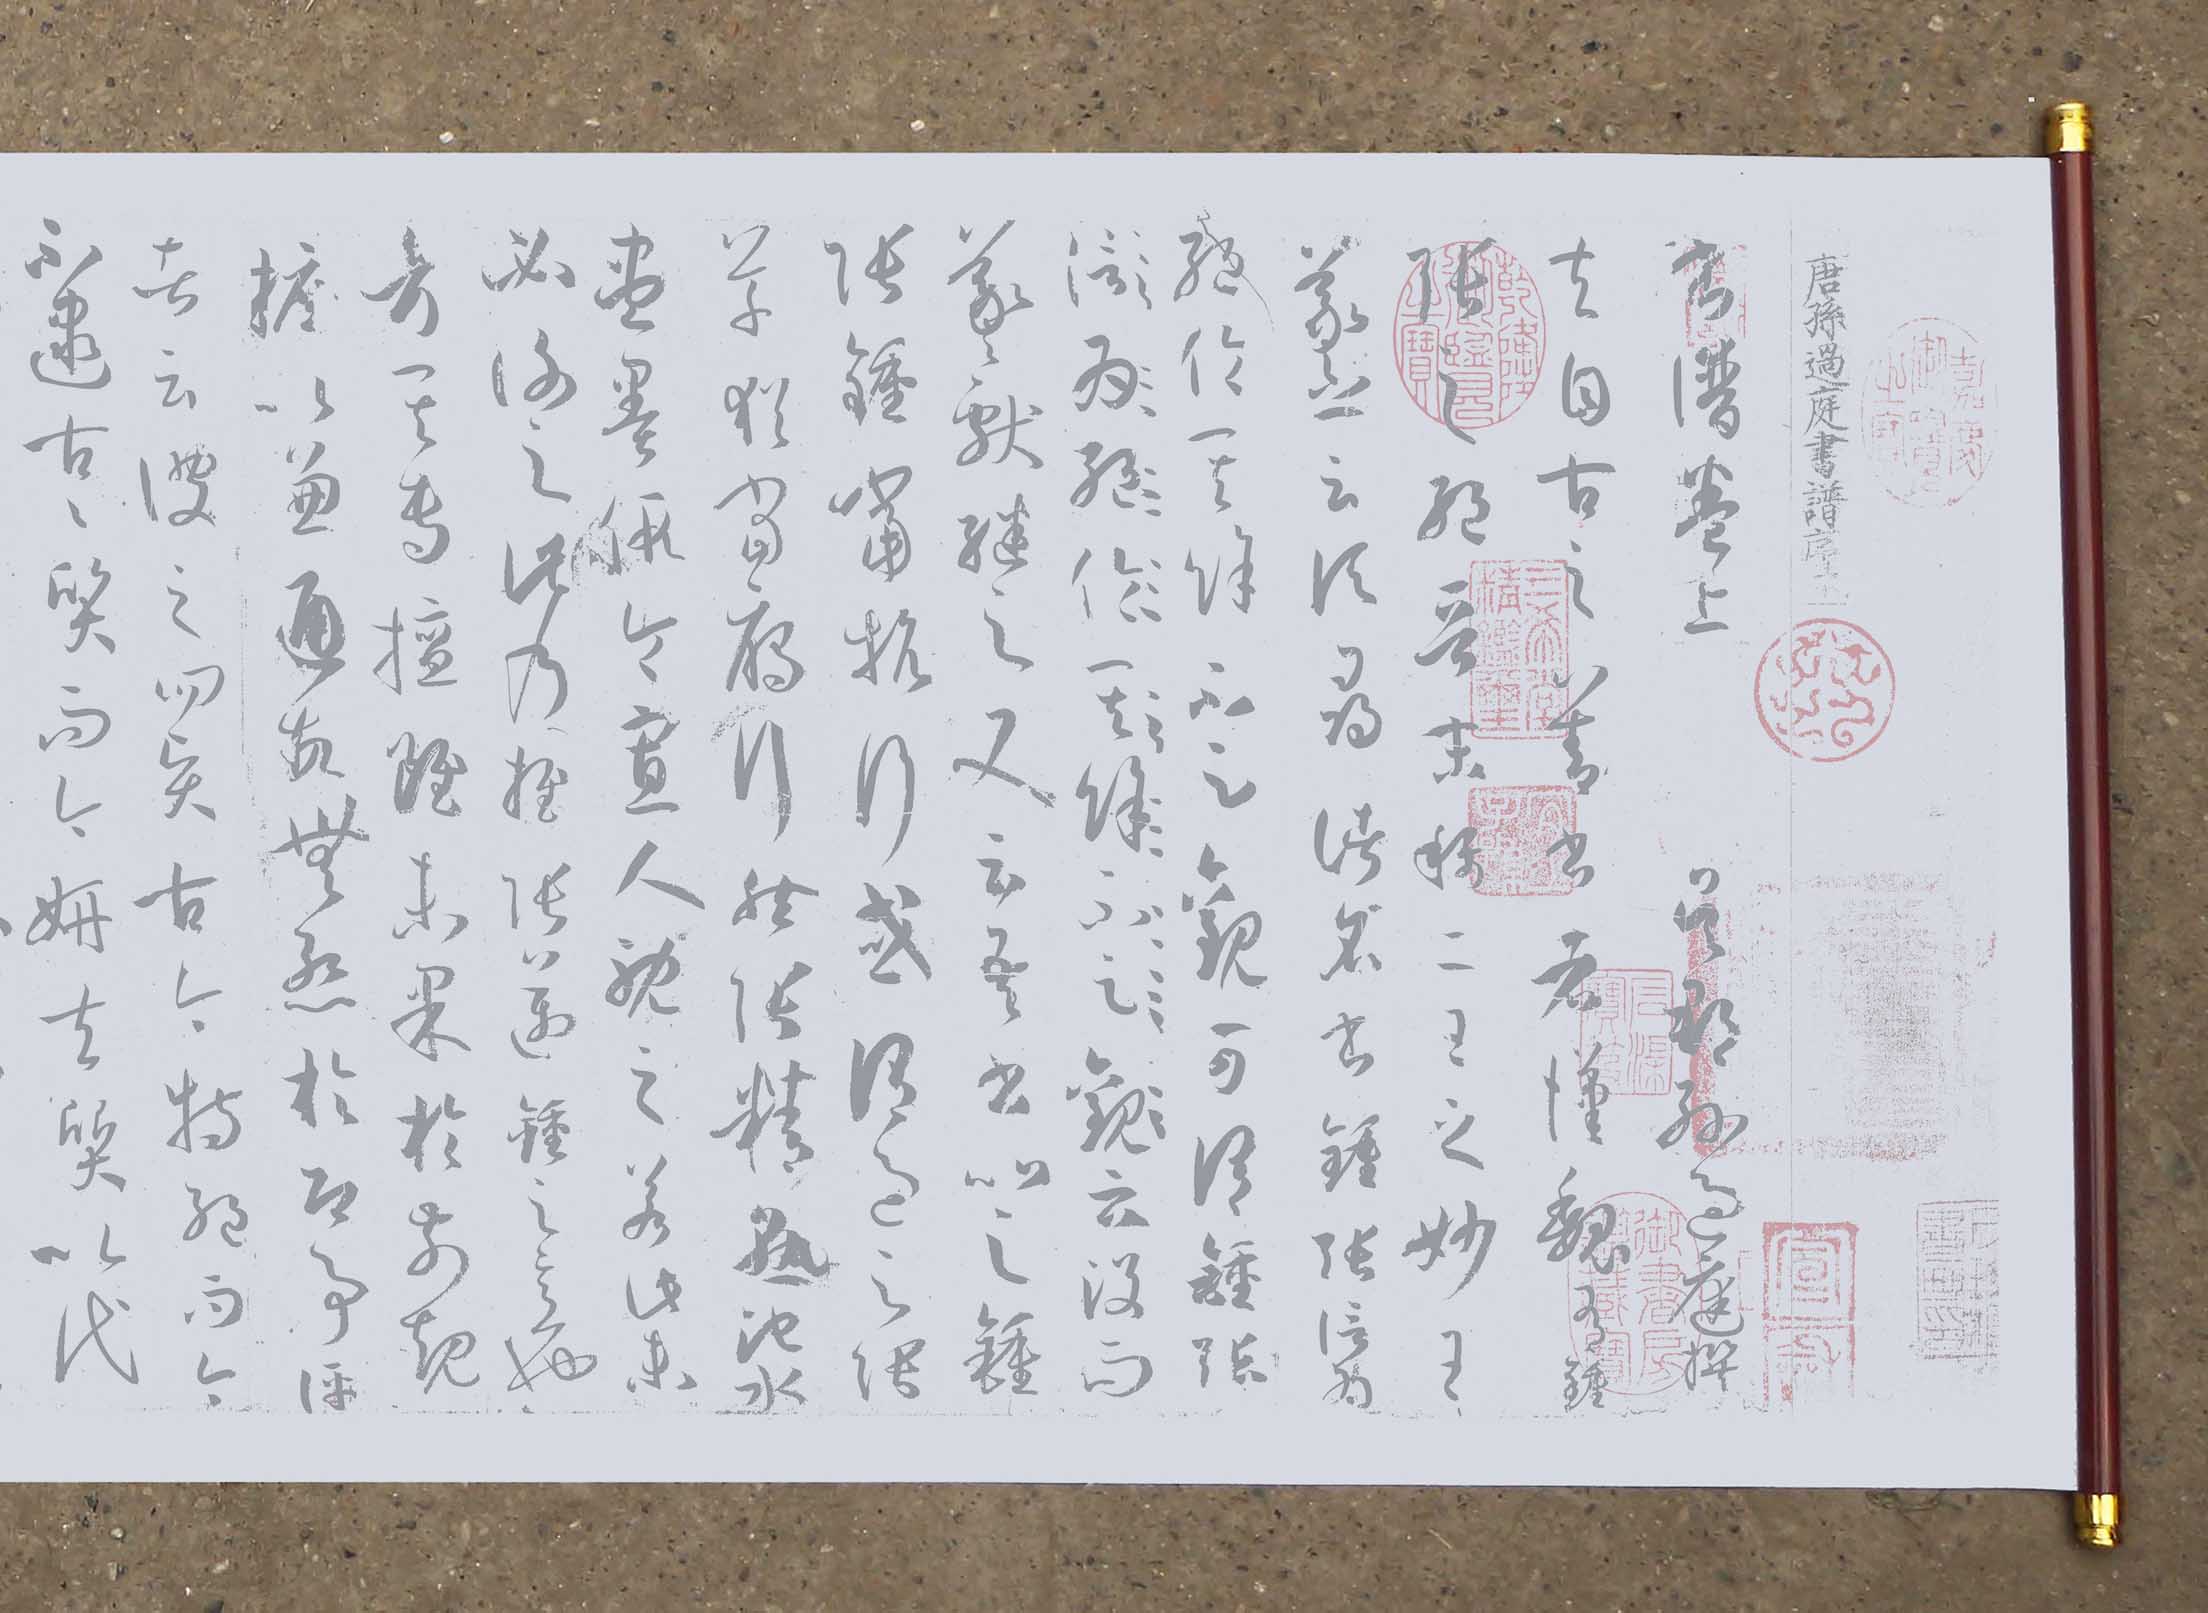 嘉慶御覽之寶
唐孫過庭書譜序上
宣和
書譜卷上 吳郡孫過庭撰
夫自古之善書者漢魏有鍾
張之絕晉末稱二王之妙王
羲之云頃尋諸名書鍾張信為
絕倫其餘不足觀可謂鍾張
為絕倫其餘不足觀云沒而
羲獻繼之又云吾書比之鍾
張鍾當抗行或謂過之張
草猶當鴈行然張精熟池水
盡墨假令寡人耽之若此未
必謝之此乃推張邁鍾之意也
考其專擅雖未果於前規
摭以兼通故無慙於即事評
者云彼之四賢古今特絕而今
不逮古〻質而今妍夫質以代
乾隆御覽之寶
三希堂精鑑璽
宜子孫
御書房鑑藏寶